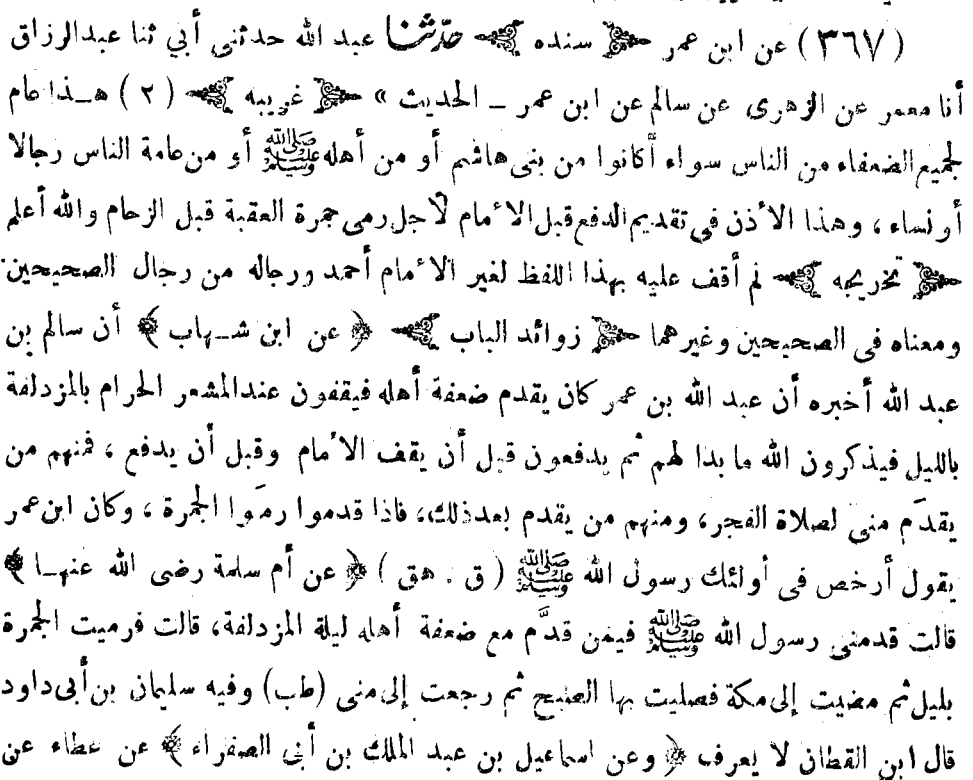 (٣٦٧) عن ابن عمر ﴿ سنده ﴾ حدّثنا عبد الله حدثنى أبي ثنا عبدالرزاق
أنا معمر عن الزهرى عن سالم عن ابن عمر ــ الحديث » ﴿ غريبه ﴾ (٢) هـذا عام
لجميع الضعفاء من الناس سواء أكانوا من بنى هاشم أو من أهله ﷺ أو من عامة الناس رجالا
أو نساء ، وهذا الأذن في تقديم الدفع قبل الأمام لأجل رمى جمرة العقبة قبل الزحام والله أعلم
﴿ تخريجه ﴾ لم أقف عليه بهذا اللفظ لغير الأمام أحمد ورجاله من رجال الصحيحين
ومعناه فى الصحيحين وغيرهما ﴿ زوائد الباب ﴾ ﴿ عن ابن شـهاب ﴾ أن سالم بن
عبد الله أخبره أن عبد الله بن عمر كان يقدم ضعفة أهله فيقفون عندالمشعر الحرام بالمزدلفة
بالليل فيذكرون الله ما بدا لهم ثم يدفعون قبل أن يقف الأمام وقبل أن يدفع ، فمنهم من
يقدَم منى لصلاة الفجر، ومنهم من يقدم بعدذلك، فاذا قدموا رمَوا الجمرة ، وكان ابن عمر
يقول أرخص فى أولئك رسول الله ﷺ ( ق . هق ) ﴿ عن أم سلمة رضى الله عنهـا ﴾
قالت قدمنى رسول الله ﷺ فيمن قدَّم مع ضعفة أهله ليلة المزدلفة، قالت فرميت الجمرة
بليل ثم مضيت إلى مكة فصليت بها الصبح ثم رجعت إلى منى (طب) وفيه سليمان بن أبى داود
قال ابن القطان لا يعرف ﴿ وعن اسماعيل بن عبد الملك بن أبى الصفراء ﴾ عن عطاء عن